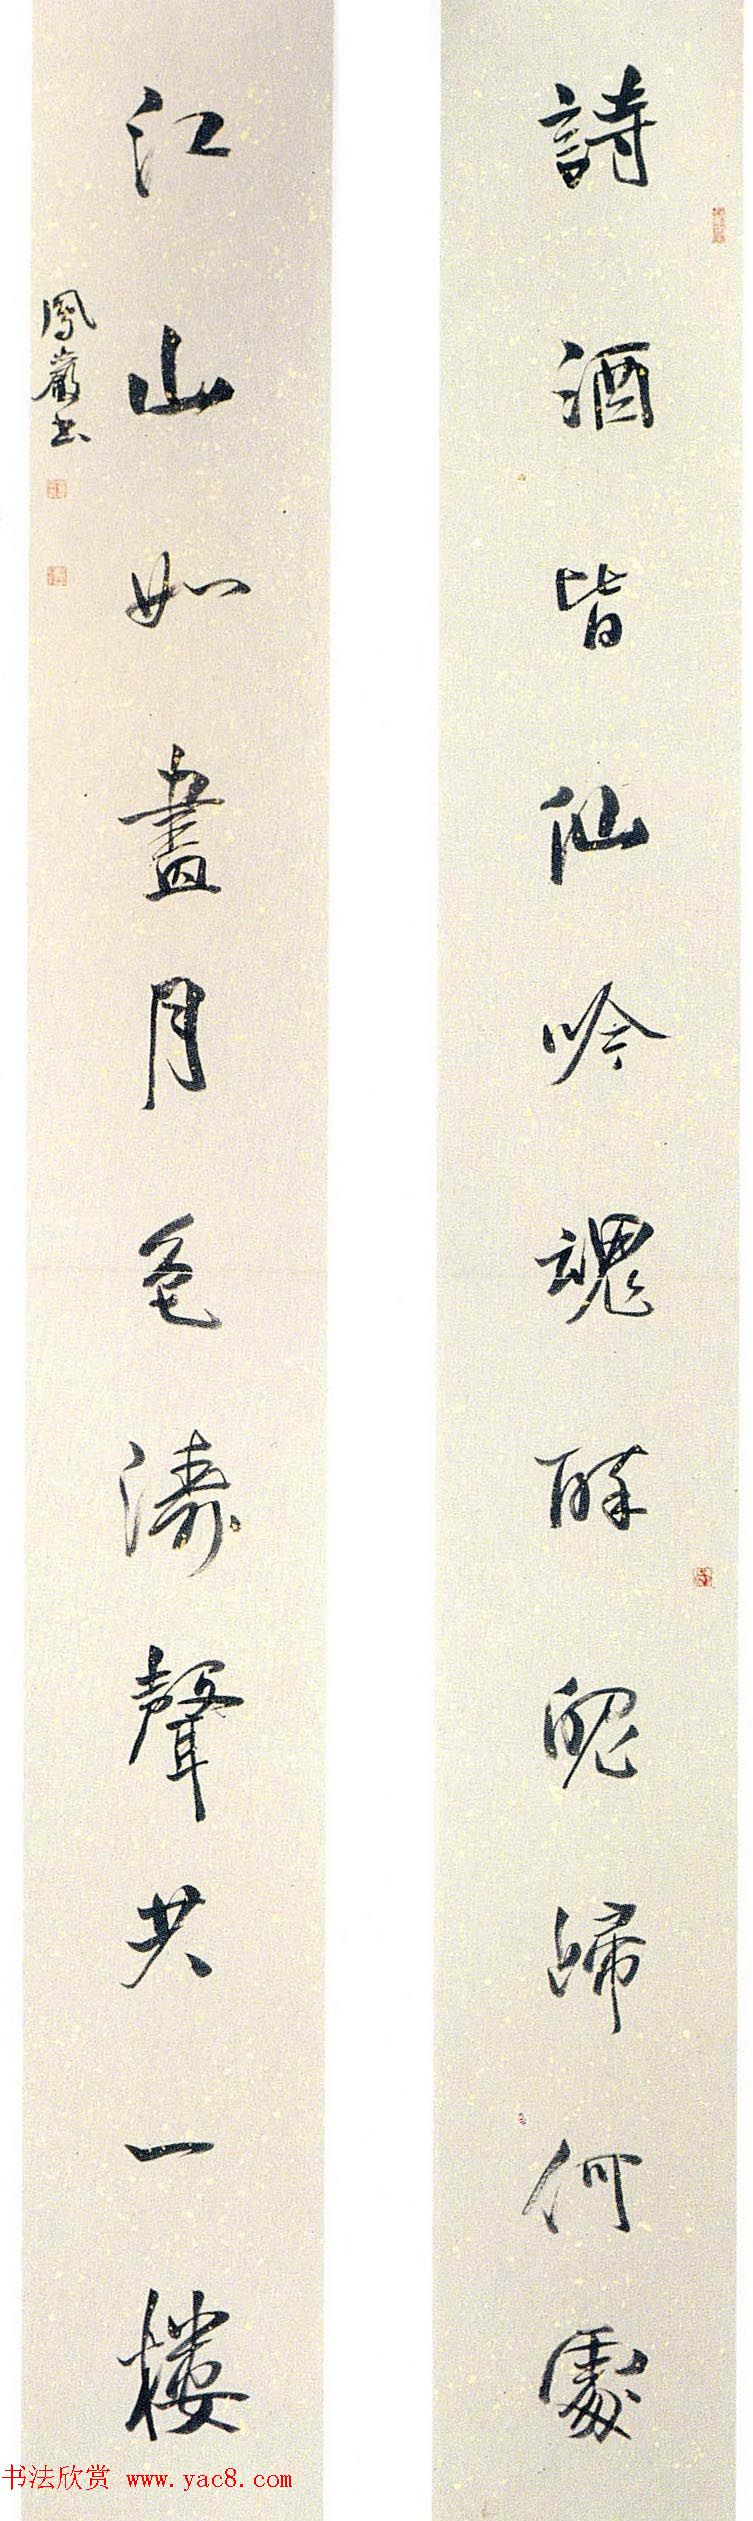 詩酒皆仙吟魂醉魄歸何處
江山如畫月色濤聲共一楼
鳳巖书
书法欣赏 www.yac8.com